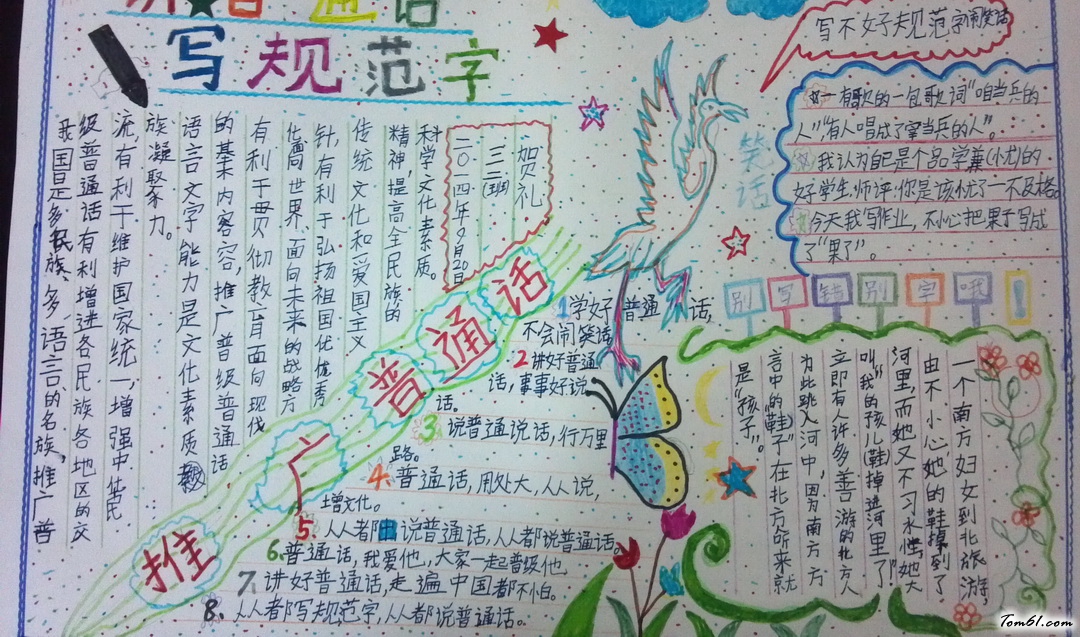 讲普通话
写规范字
我国是多民族、多语言的名族,推广普
级普通话有利增进各民族各地区的交
流,有利于维护国家统一,增强中华民
族凝聚力。
语言文字能力是文化素质
的基本内容容,推广普级普通话
有利于贯彻教育面向现代
化面向世界,面向未来的战略方
针,有利于弘扬祖国优秀
传统文化和爱国主义
精神,提高全民族的
科学文化素质。
贺礼
三三(班)
二〇一四年9月20日
推广普通话
1学好普通话,
不会闹笑话
2讲好普通
话,事事好说
话。
3说普通说话,行万里
路。
4.普通话,用处大,人人说,
增文化。
5.人人者都说普通话,人人者都说普通话。
6.普通话,我爱他,大家一起普级他,
7.讲好普通话,走遍中国都不怕。
8.人人都写规范字,人人都说普通话。
写不好规范字闹笑话
笑话
有歌的一包歌词“咱当兵的
人”有人唱成了掌当兵的人”。
我认为自己是个品学兼(忧)的
好学生,师评:你是该忧了一不及格。
今天我写作业,不小心把果子写成
了“果了”。
别写错别字哦!
一个南方妇女到北旅游,
由不小心,她的鞋掉到了
河里,而她又不习水性,她大
叫“我的孩儿(鞋)掉进河里了”
立即有人许多善游的北方人
为此跳入河中,因为南方方
言中的“鞋子”在北方听来就
是“孩子”。
Tom61.com